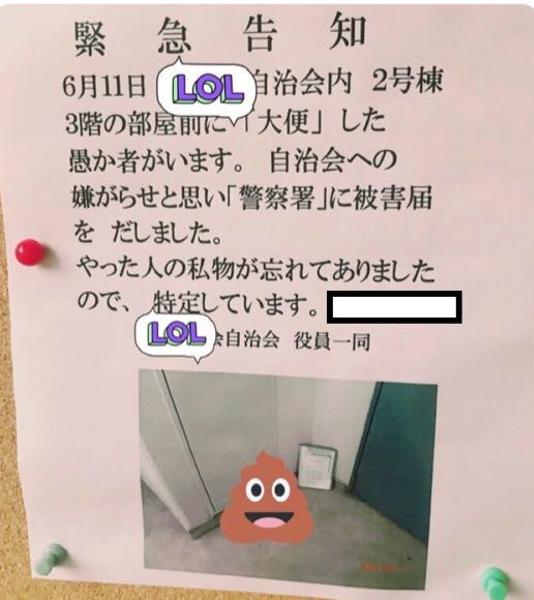 緊急告知
6月11日 LOL 自治会内 2号棟
3階の部屋前に「大便」した
愚か者がいます。 自治会への
嫌がらせと思い「警察署」に被害届
を だしました。
やった人の私物が忘れてありました
ので、特定しています。
LOL 会自治会 役員一同